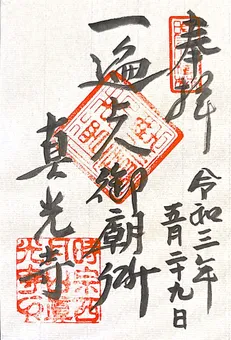 奉拝
令和三年
五月二十九日
一遍上人御廟所
真光寺